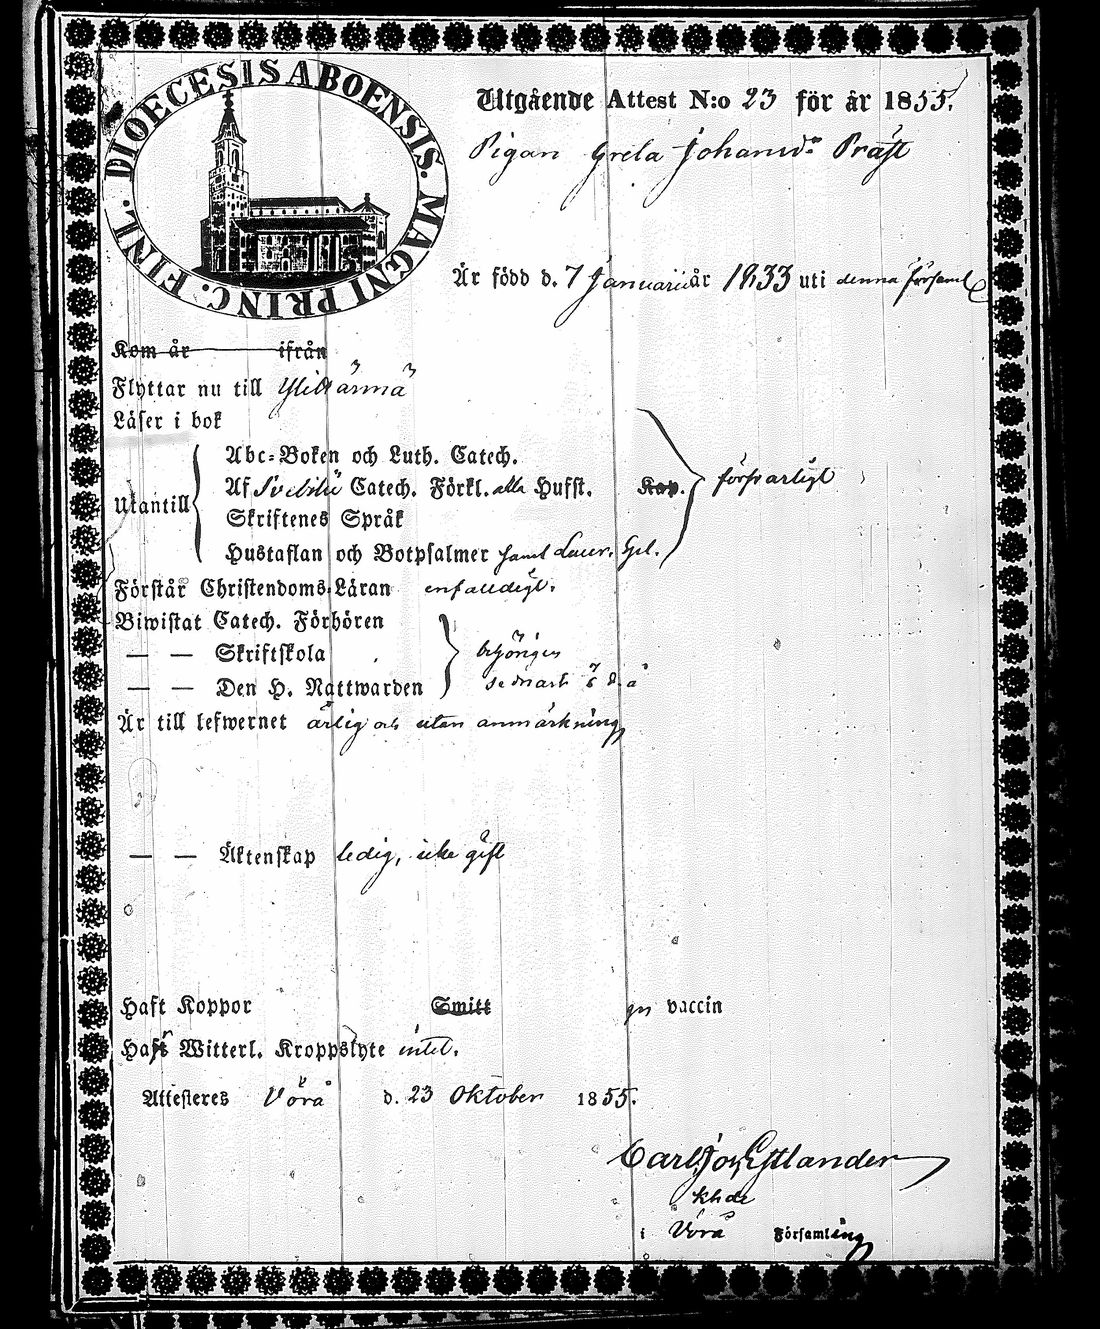 DIOECESIS ABOENSIS. MAGNI PRINC. FINL.
Utgående Attest N:o 23 för år 1855.
Pigan Greta Johansdr Präst
Är född d. 7 Januarii år 1833 uti denna församl
Kom år ifrån
Flyttar nu till Ylihärmä
Läser i bok
Utantill
Abc-Boken och Luth. Catech.
Af Svebilii Catech. Förkl. alla Hufst. Kap. försvarligt
Skriftenes Språk
Hustaflan och Botpsalmer samt Laur. Gel.
Förstår Christendoms-Läran enfaldigt.
Biwistat Catech. Förhören
— — Skriftskola behörigen
— — Den H. Nattwarden sednast d. å
Är till lefwernet ärlig och utan anmärkning
— — Äktenskap ledig, icke gift
Haft Koppor Smitt gn vaccin
Haft Witterl. Kroppslyte intet.
Attesteres Vörå d. 23 Oktober 1855.
Carl Joh Estlander
khde
i Vörå Församling